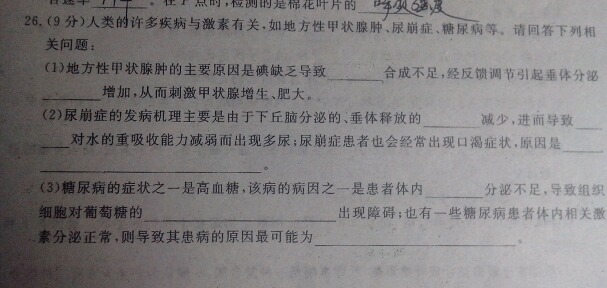 。在P点时,检测的是棉花叶片的 呼吸强度
26.(9分)人类的许多疾病与激素有关,如地方性甲状腺肿、尿崩症、糖尿病等。请回答下列相
关问题:
(1)地方性甲状腺肿的主要原因是碘缺乏导致______合成不足,经反馈调节引起垂体分泌
______增加,从而刺激甲状腺增生、肥大。
(2)尿崩症的发病机理主要是由于下丘脑分泌的、垂体释放的______减少,进而导致____
____对水的重吸收能力减弱而出现多尿;尿崩症患者也会经常出现口渴症状,原因是____
______________________。
(3)糖尿病的症状之一是高血糖,该病的病因之一是患者体内______分泌不足,导致组织
细胞对葡萄糖的____________________出现障碍;也有一些糖尿病患者体内相关激
素分泌正常,则导致其患病的原因最可能为____________________。